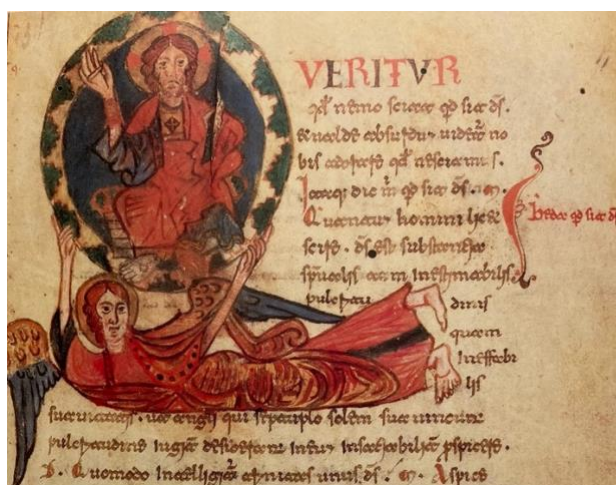 VERITVR
qđ nemo sciat qđ sit ds̄.
& ualde absurdū uidet̄ no
bis adorare qđ nesciamus.
Itaq; dic m̄ qđ sit ds̄. m̄.
Quantum homini lic&
scire. ds̄ est substantia
sp̄ualis tam inestimabilis
pulcritu dinis
quam
ineffabi
lis
suauitatis. ut angli qui septuplo solem sua uincunt
pulcritudine iugit̄ desiderent in eū insatiabilit̄ p̄spicere.
D. Quomodo intelligit̄ trinitas unus ds̄. m̄. Aspice